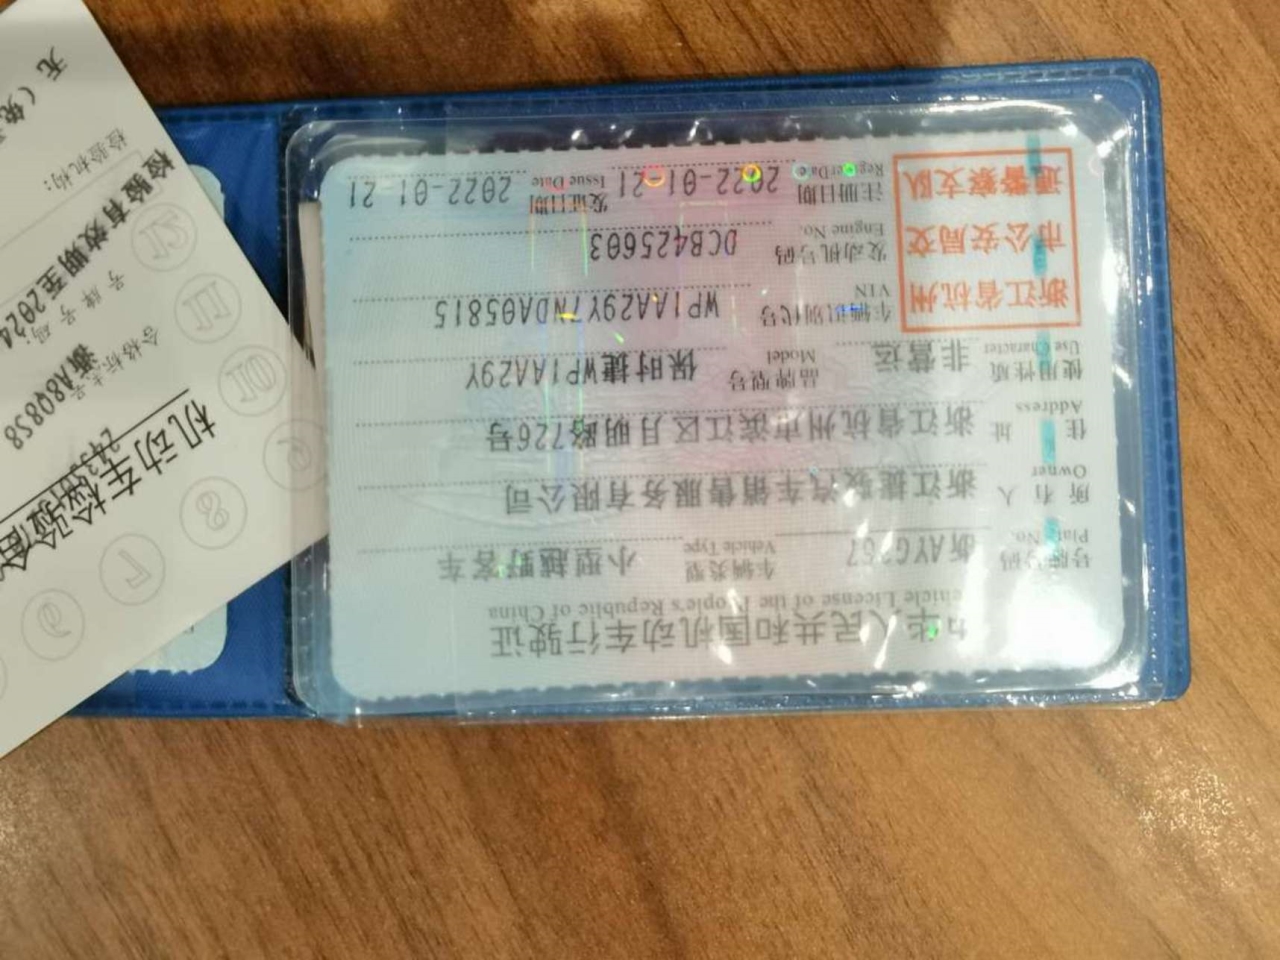 中华人民共和国机动车行驶证
Vehicle License of the People's Republic of China
号牌号码 浙AYG267 车辆类型 小型越野客车
Plate No. Vehicle Type
所有人 浙江捷骏汽车销售服务有限公司
Owner
住址 浙江省杭州市滨江区月明路726号
Address
使用性质 非营运 品牌型号 保时捷WP1AA29Y
Use Character Model
浙江省杭州
市公安局交
通警察支队
车辆识别代号 WP1AA29Y7NDA05815
VIN
发动机号码 DCB425603
Engine No.
注册日期 2022-01-21 发证日期 2022-01-21
Register Date Issue Date
机动车检验
合格标志
号牌号码: 浙A8Q8S8
检验有效期至2024
检验机构:
无(免
6 7 8 9 10 11 12